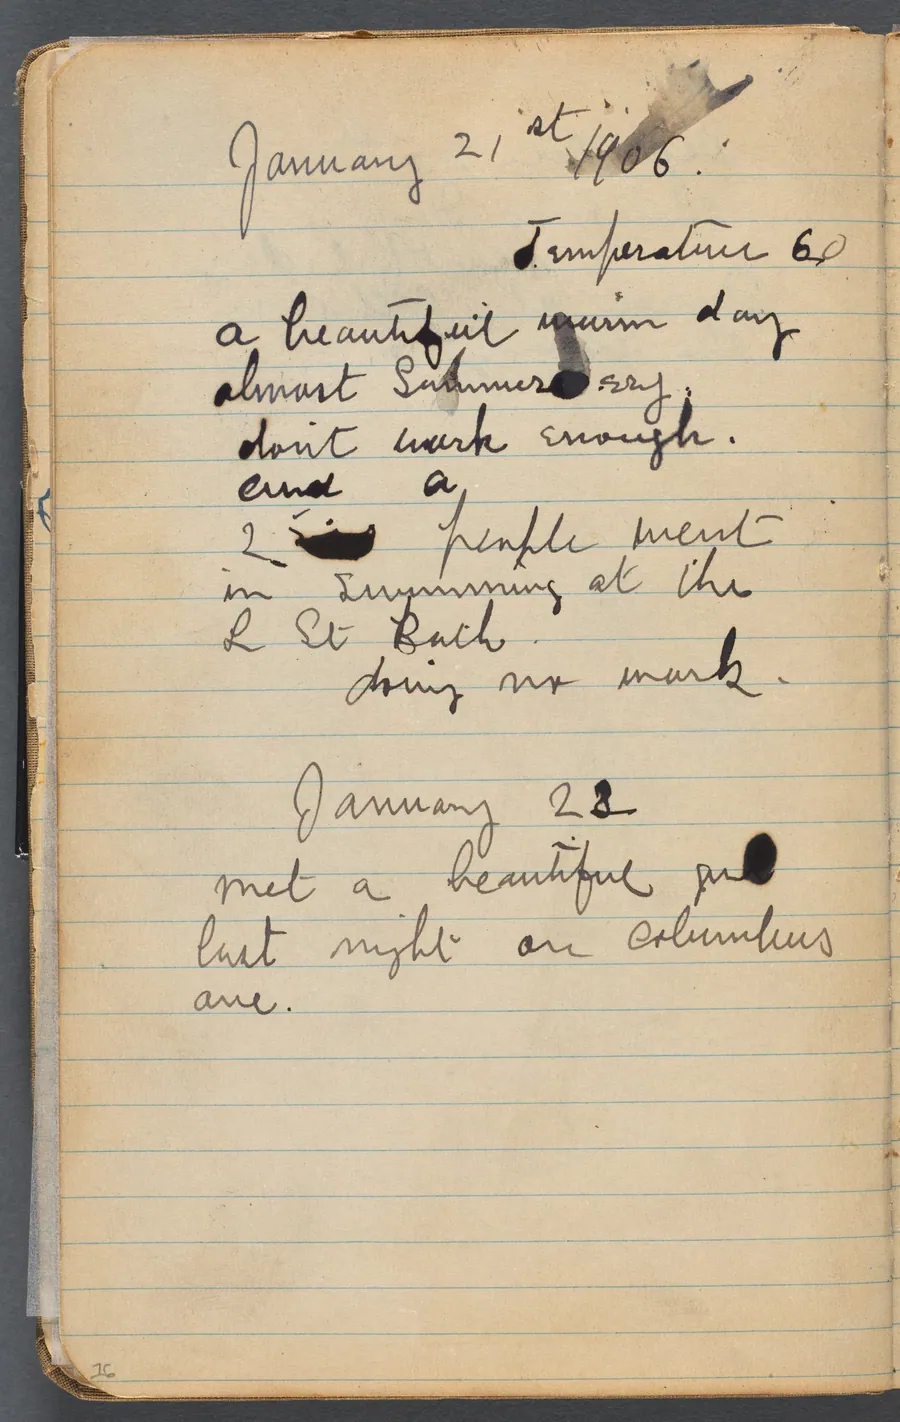 January 21st 1906.
Temperature 60
a beautiful warm day
almost Summery.
don't work enough.
and a
2 people went
in swimming at the
L St Bath.
doing no work.
January 22
met a beautiful girl
last night on Columbus
ave.
16